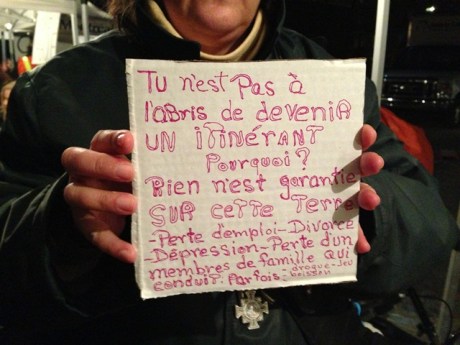 TU n'est Pas à
l'aBris de devenir
UN itinérant
Pourquoi?
Rien n'est garantie
SUR cette Terre
-Perte d'emploi-Divorce
-Dépression-Perte d'un
membres de famille qui
conduit. Parfois-drogue-Jeu
boisson